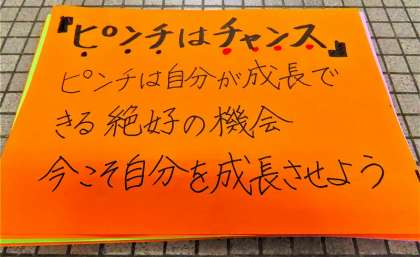 『ピンチはチャンス』
ピンチは自分が成長で
きる絶好の機会
今こそ自分を成長させよう